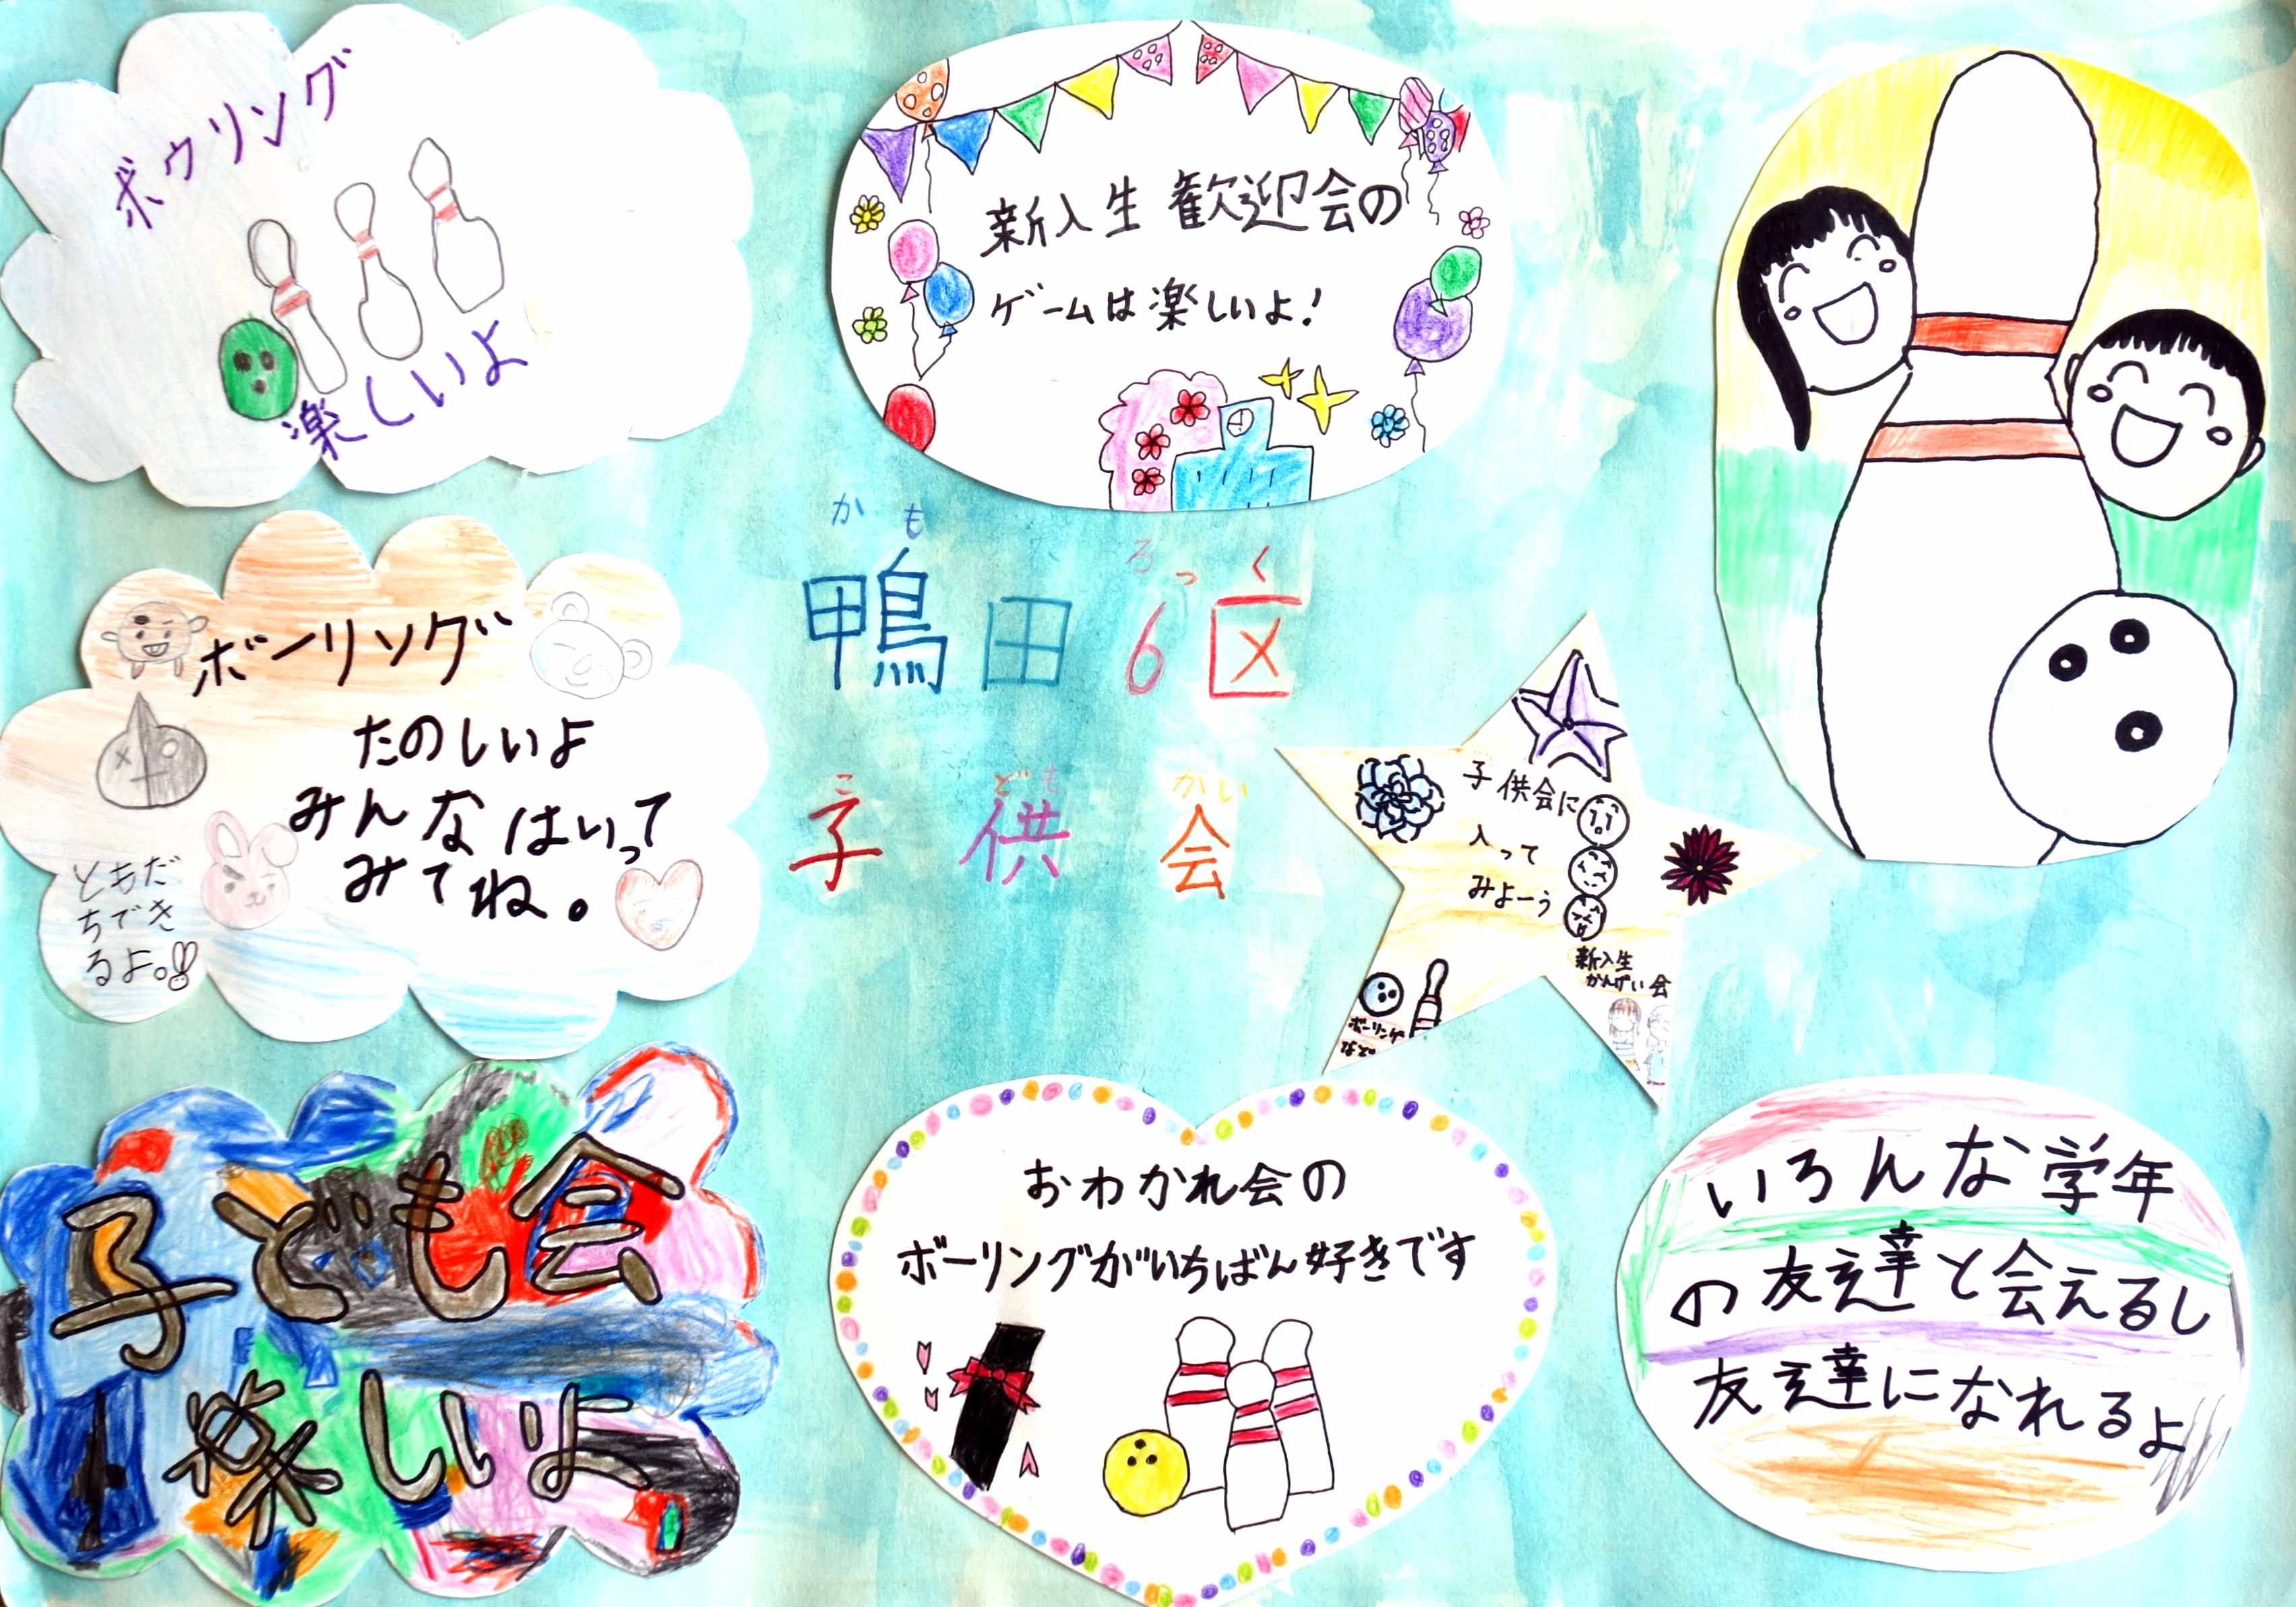 ボゥリング
楽しいよ
新入生歓迎会の
ゲームは楽しいよ!
かも
た
ろっく
鴨田6区
こ ども かい
子供会
ボーリング
たのしいよ
みんなはいって
みてね。
ともだ
ちでき
るよ。
子供会に
入って
みよーう
新入生
かんげい会
ボーリング
など。
子ども会
楽しいよ
おわかれ会の
ボーリングがいちばん好きです
いろんな学年
の友達と会えるし
友達になれるよ